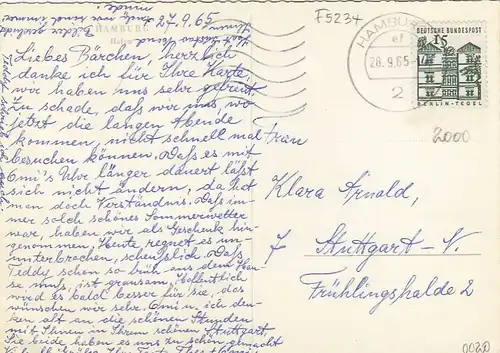 27.9.65
F5234
HAMBURG
Liebes Bärchen, herzlich
danke ich für Ihre Karte,
wir haben uns sehr gefreut
Zu schade, daß wir uns, wo
jetzt die langen Abende
kommen, nicht schnell mal
besuchen können. Daß es mit
Omi's Uhr länger dauert läßt
sich nicht ändern, da hat
man doch Verständnis. Daß im-
mer solch schönes Sommerwetter
war, haben wir als Geschenk hin-
genommen. Heute regnet es un-
unterbrochen, scheußlich. Daß
Teddy schon so früh aus dem Hau-
se muß, ist grausam, hoffentlich
wird es bald besser für sie, das
wünschen wir sehr. Omi u. ich den-
ken oft an die schönen Stunden
mit Ihnen in Ihrem schönen Stuttgart
Sie beide haben es uns zu schön gemacht
HAMBURG
28.9.65
2
DEUTSCHE BUNDESPOST
15
BERLIN-TEGEL
2000
Frau
Klara Arnold,
7 Stuttgart-N.
Frühlingshalde 2
0020